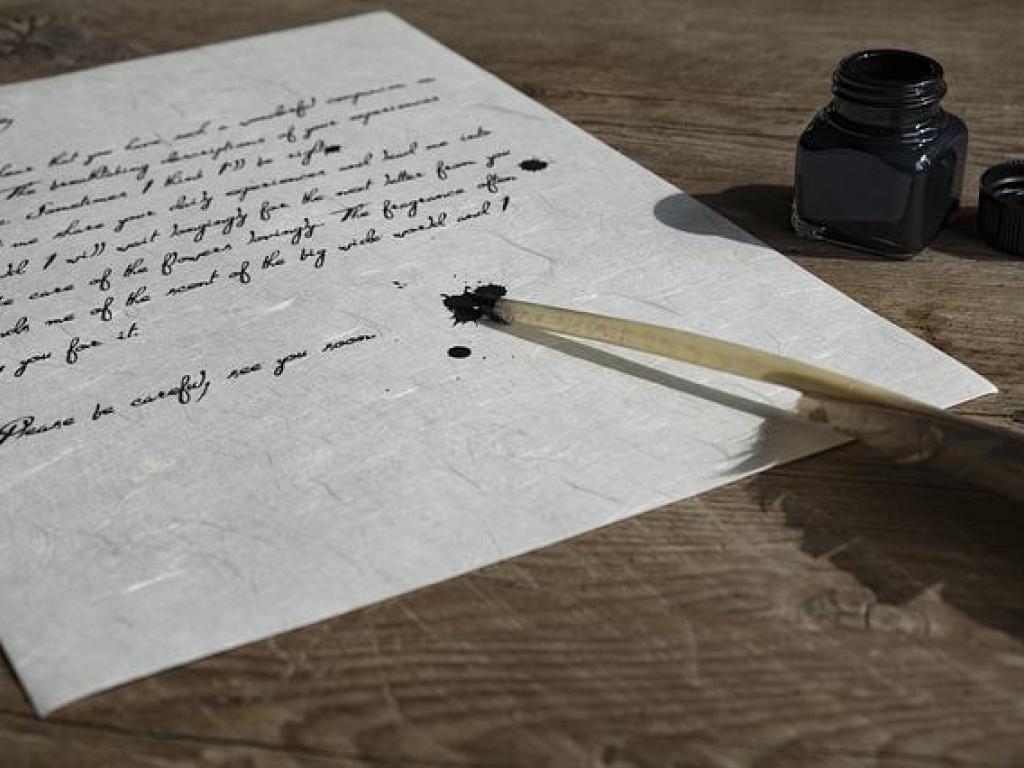 that you have such a wonderful companion on
The breathtaking descriptions of your experiences
Sometimes I think I'll be right
me share your daily experiences and lead me into
I will wait longingly for the next letter from you
care of the flowers lovingly. The fragrance often
me of the scent of the big wide world and I
you for it.
Please be careful, see you soon.